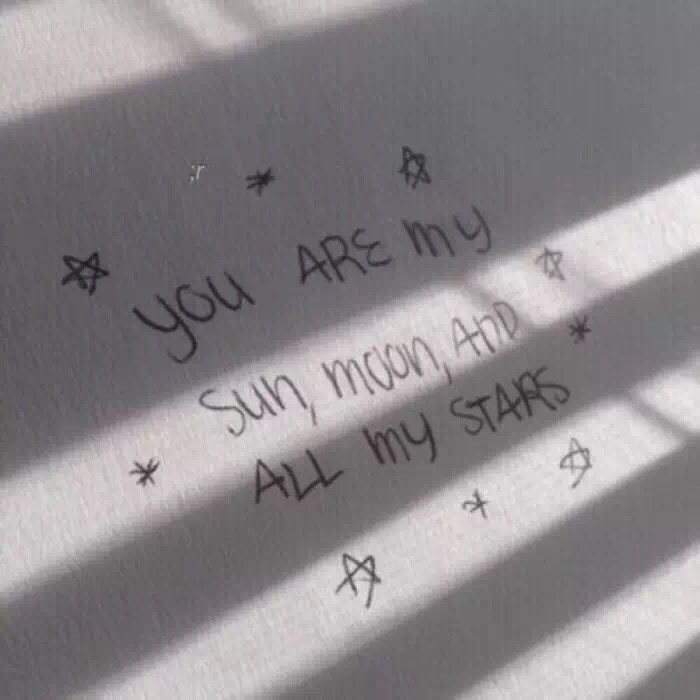 you ARE my
Sun, moon, AnD
ALL my STARS